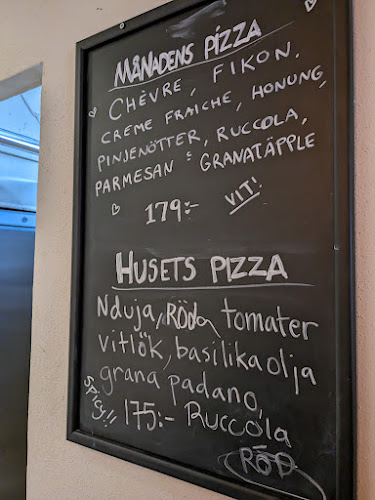 MÅNADENS PIZZA
CHÈVRE, FIKON,
CREME FRAICHE, HONUNG,
PINJENÖTTER, RUCCOLA,
PARMESAN & GRANATÄPPLE
179:- VIT!
HUSETS PIZZA
Nduja, Röda tomater
vitlök, basilikaolja
grana padano,
SPICY!! 175:- Ruccola
RÖD